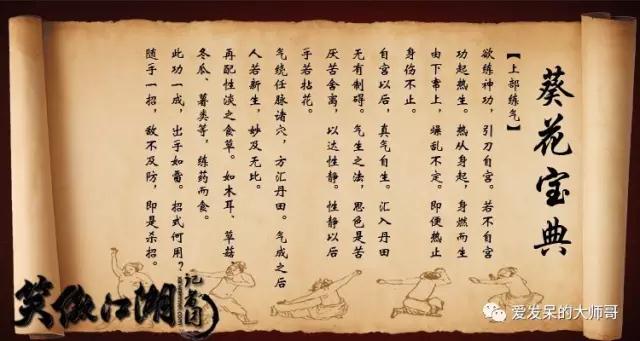 葵花宝典
【上部练气】
欲练神功，引刀自宫。若不自宫
功起热生。热从身起，身燃而生
由下窜上，燥乱不定。即便热止
身伤不止。
自宫以后，真气自生。汇入丹田
无有制碍。气生之法，思色是苦
厌苦舍离，以达性静。性静以后
乎若拈花。
气绕任脉诸穴，方汇丹田。气成之后
人若新生，妙及无比。
再配性淡之食草。如木耳、草菇
冬瓜、薯类等，练药而食。
此功一成，出乎如雷。招式何用？
随乎一招，敌不及防，即是杀招。
笑傲江湖
记者团
爱发呆的大师哥